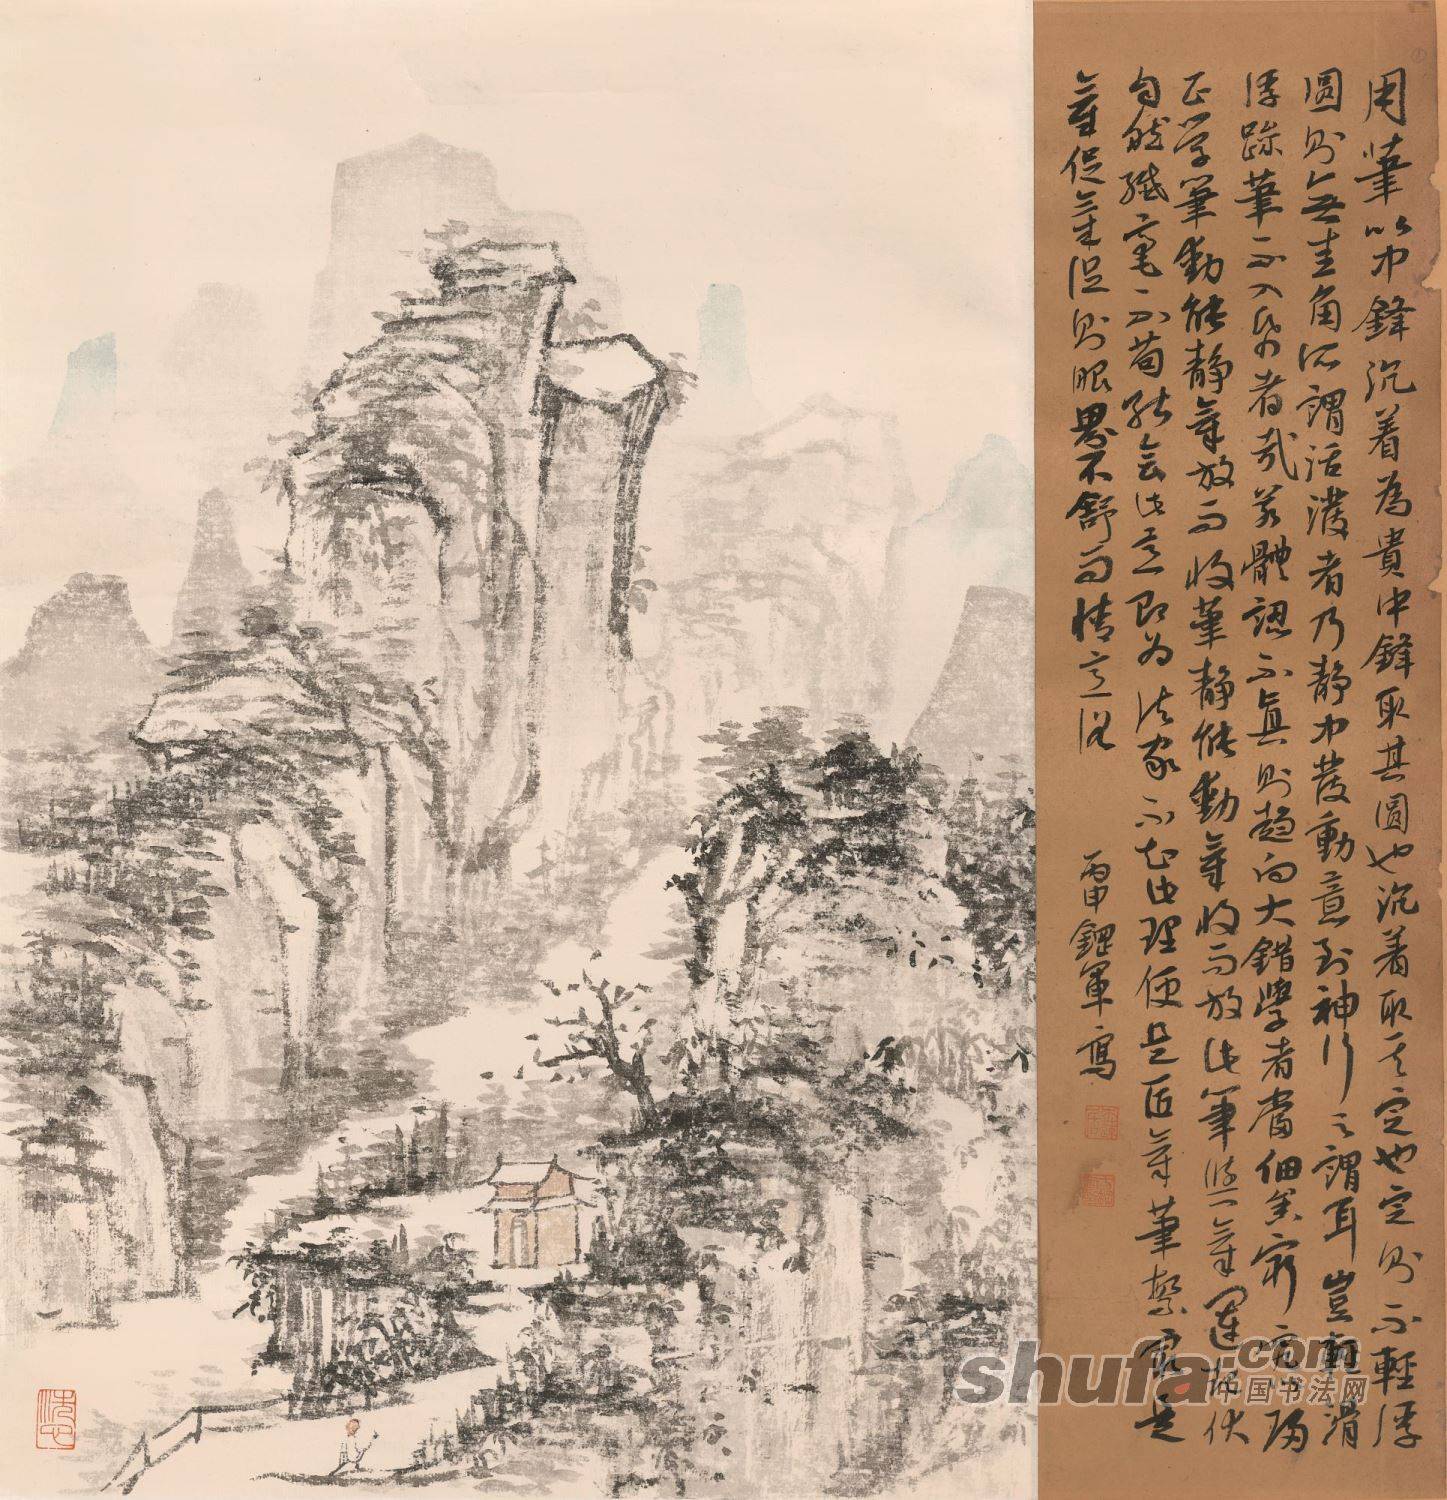 用筆以中鋒沉着為貴中鋒取其圓也沉着取其定也定則不輕浮
圓則無圭角所謂活潑者乃靜中發動意到神行之謂耳豈輕滑
浮跡筆不入紙者哉若體認不真則趨向大錯學者當細參窮究歸
正學筆動能靜氣放而收筆靜能動氣收而放此筆氣運起伏
自然纖毫不苟能會此意即為法家不知此理便是匠氣筆繁窘是
氣促氣促則眼界不舒而情意
丙申 軍寫
shufa.com
中国书法网